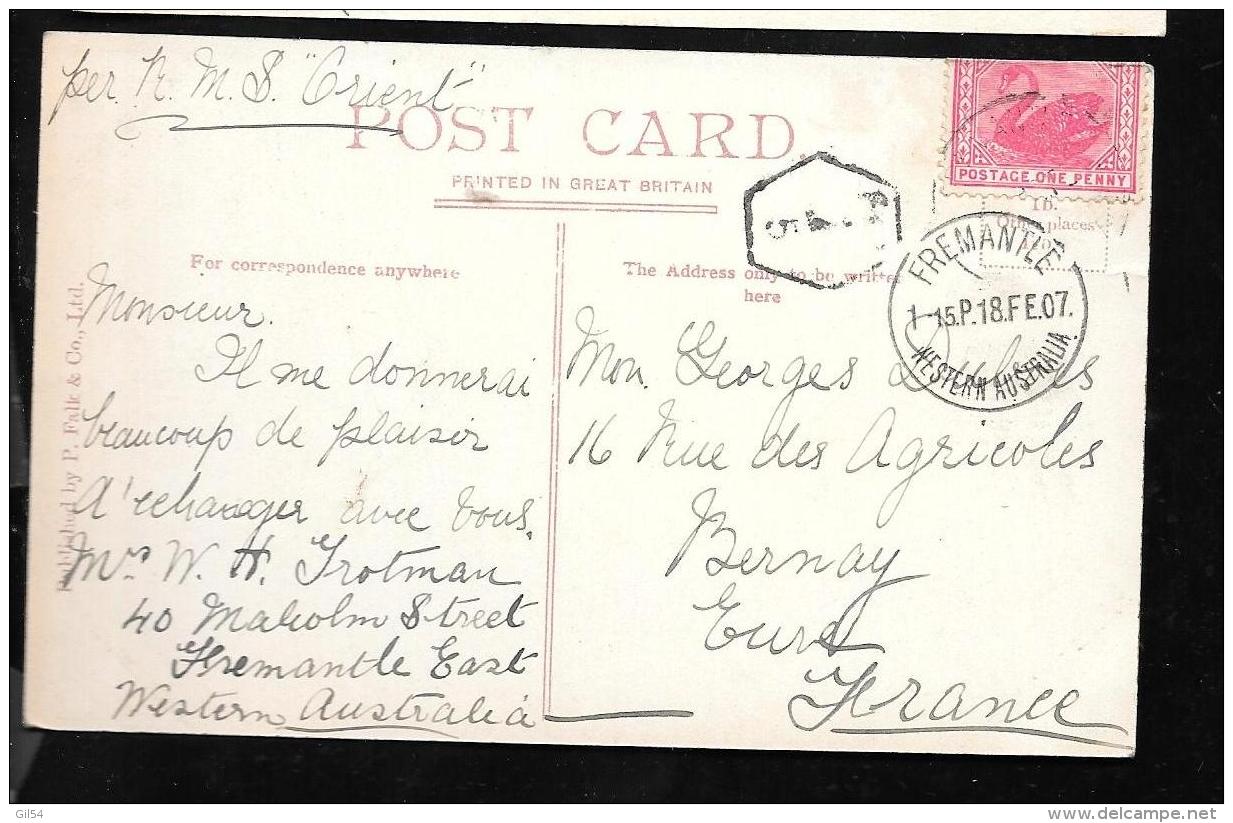 per. R. M. S. "Orient"
POST CARD.
PRINTED IN GREAT BRITAIN
For correspondence anywhere
The Address only to be written
here
POSTAGE ONE PENNY
FREMANTLE
15.P.18.FE.07.
WESTERN AUSTRALIA
Published by P. Falk & Co., Ltd.
Monsieur.
Il me donnerai
beaucoup de plaisir
d'echanger avec vous.
Mrs W. H. Trotman
40 Malcolm Street
Fremantle East
Western Australia
Mon. Georges
16 Rue des Agricoles
Bernay
Eure
France
Gil54
delcampe.net